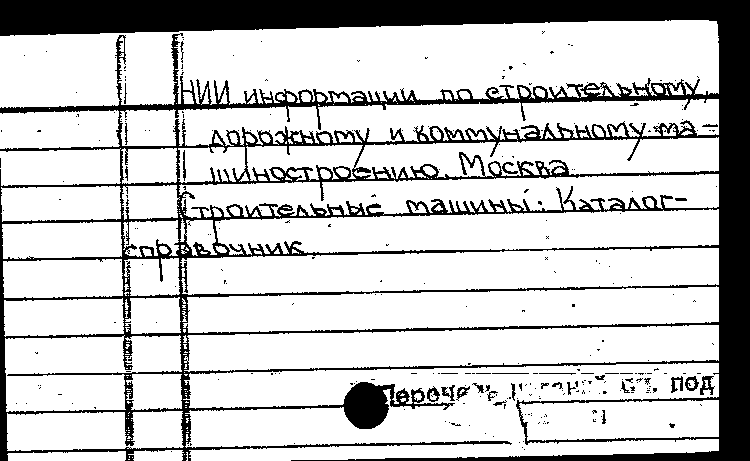 НИИ информации по строительному,
дорожному и коммунальному ма-
шиностроению. Москва
Строительные машины: Каталог-
справочник
под